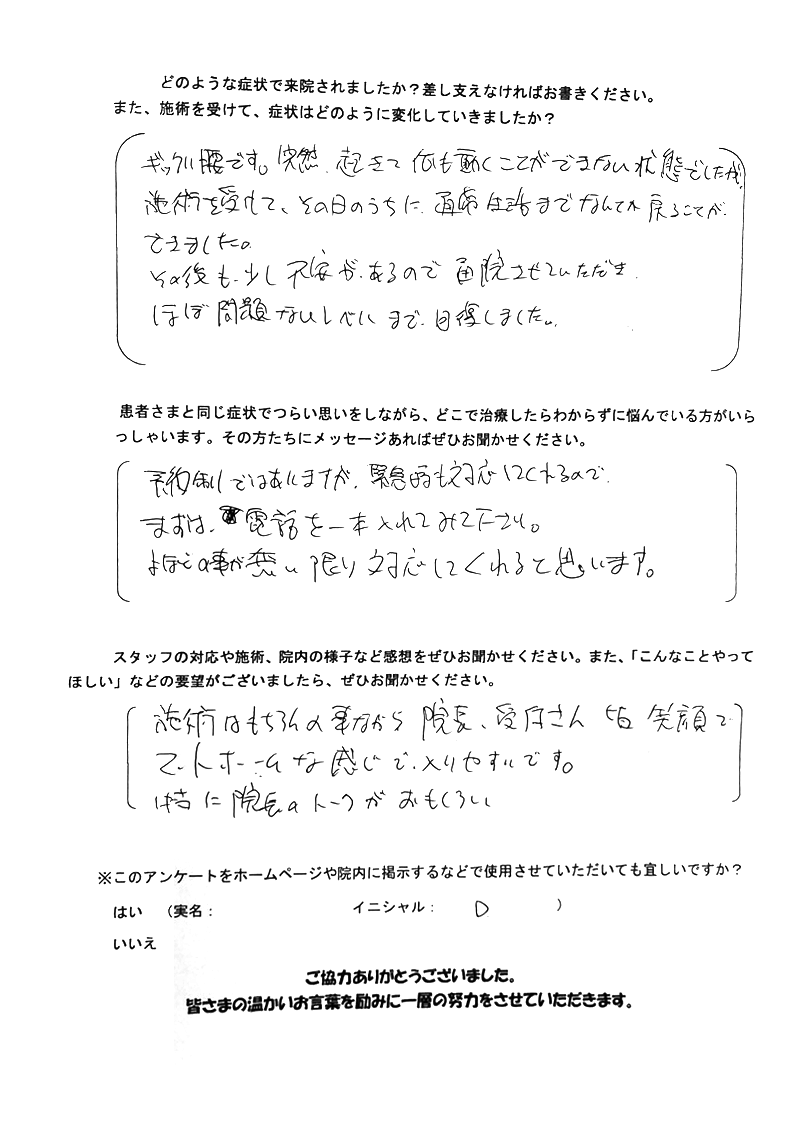 どのような症状で来院されましたか？差し支えなければお書きください。
また、施術を受けて、症状はどのように変化していきましたか？
ギックリ腰です。突然、起きて何も動くことができない状態でしたが、
施術を受けて、その日のうちに、通常生活までなんとか戻ることが
できました。
その後も、少し不安があるので通院させていただき
ほぼ問題ないレベルまで、回復しました。
患者さまと同じ症状でつらい思いをしながら、どこで治療したらわからずに悩んでいる方がいら
っしゃいます。その方たちにメッセージあればぜひお聞かせください。
予約制ではありますが、緊急的も対応してくれるので、
まずは、電話を一本入れてみて下さい。
よほどの事が無い限り対応してくれると思います。
スタッフの対応や施術、院内の様子など感想をぜひお聞かせください。また、「こんなことやって
ほしい」などの要望がございましたら、ぜひお聞かせください。
施術はもちろんの事ながら院長、受付さん皆笑顔で
アットホームな感じで、入りやすいです。
特に院長のトークがおもしろい
※このアンケートをホームページや院内に掲示するなどで使用させていただいても宜しいですか？
はい （実名： イニシャル： D ）
いいえ
ご協力ありがとうございました。
皆さまの温かいお言葉を励みに一層の努力をさせていただきます。